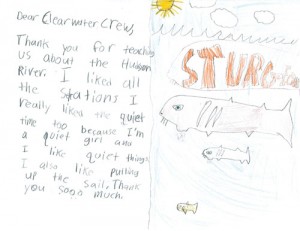 Dear Clearwater Crew,
Thank you for teaching
us about the Hudson
River. I liked all
the stations I
really liked the quiet
time too because I'm
a quiet girl and
I like quiet things.
I also like pulling
up the sail. Thank
you sooo much.
STURGEON